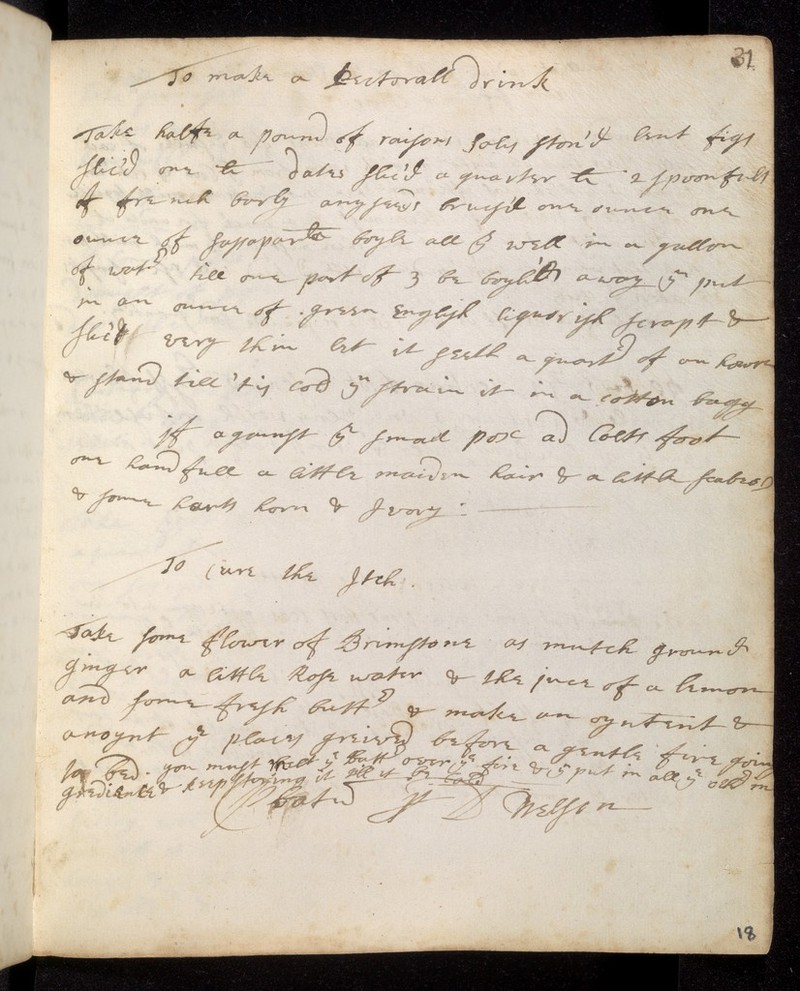 31
To make a Pectorall drink
Take halfe a pound of raisons Solis ston'd lent figs
slic'd one dates slic'd a quarter 2 spoonfuls
of french barly anyseeds bruis'd one ounce one
ounce of boyle all ys well in a gallon
of watr till one part of 3 be boyl'd away yn put
in an ounce of green English liquorish scrapt &
slic'd very thin let it seeth a quartr of an howre
& stand till 'tis cod yn strain it in a cotton bagg
if against ye smad pox ad Colts foot
one handfull a little maiden hair & a little
& some harts horn & Ivory :
To Cure the Itch.
Take some flower of Brimstone as mutch ground
ginger a little Rose water & the juce of a lemon
and some fresh buttr & make an oyntent &
anoynt ye places greived before a gentle fire going
to bed. you must melt ye buttr over ye fire & yn put in all ye othr in
gredients & keep stiring it till it be
Nelson
18